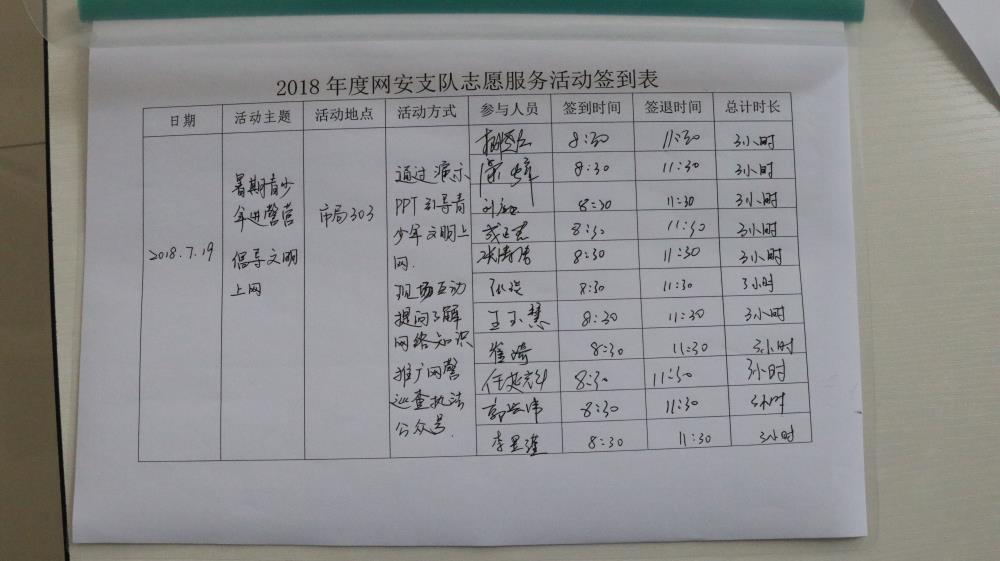 2018 年度网安支队志愿服务活动签到表
日期 活动主题 活动地点 活动方式 参与人员 签到时间 签退时间 总计时长
2018.7.19
暑期青少
年进警营
倡导文明
上网
市局303
通过演示
PPT引导青
少年文明上
网.
现场互动
提问了解
网络知识
推广网警
巡查执法
公众号.
8:30 11:30 3小时
8:30 11:30 3小时
8:30 11:30 3小时
8:30 11:30 3小时
8:30 11:30 3小时
8:30 11:30 3小时
王玉慧 8:30 11:30 3小时
崔琦 8:30 11:30 3小时
8:30 11:30 3小时
8:30 11:30 3小时
8:30 11:30 3小时